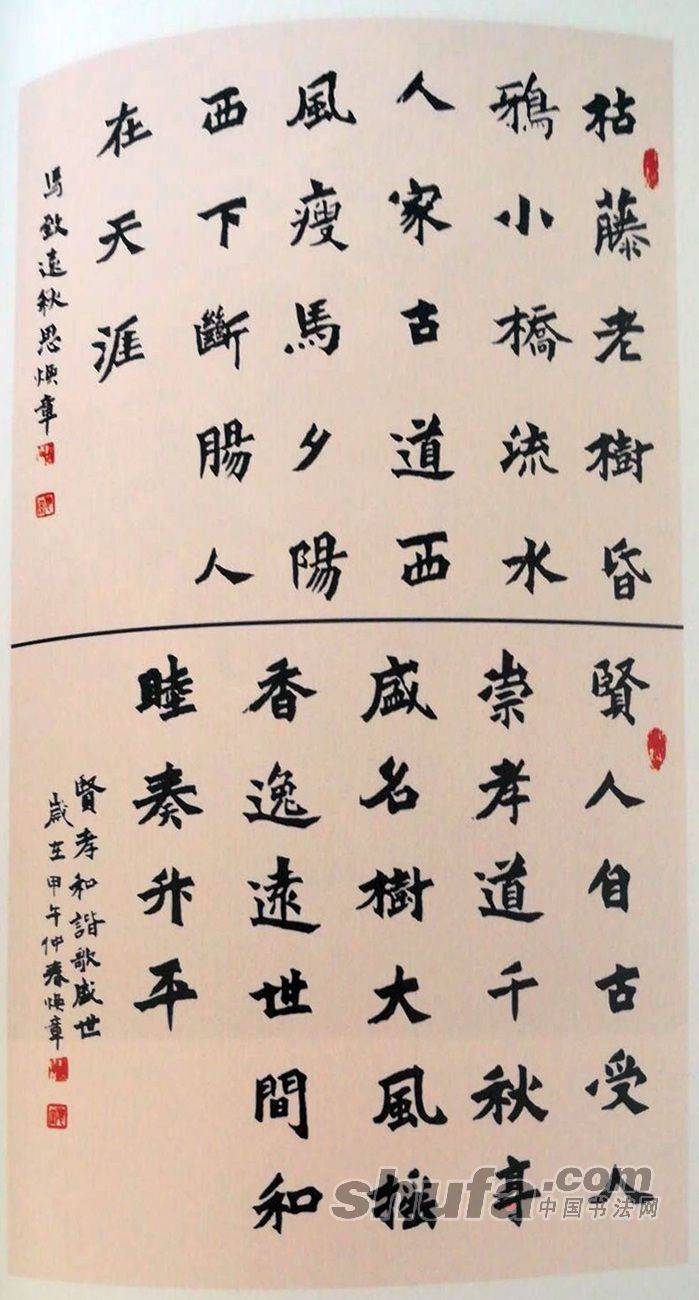 枯藤老樹昏
鴉小橋流水
人家古道西
風瘦馬夕陽
西下斷腸人
在天涯
馬致遠秋思煥章
賢人自古受人
崇孝道千秋享
盛名樹大風搖
香逸遠世間和
睦奏升平
賢孝和諧歌盛世
歲在甲午仲春煥章
shufa.com
中国书法网